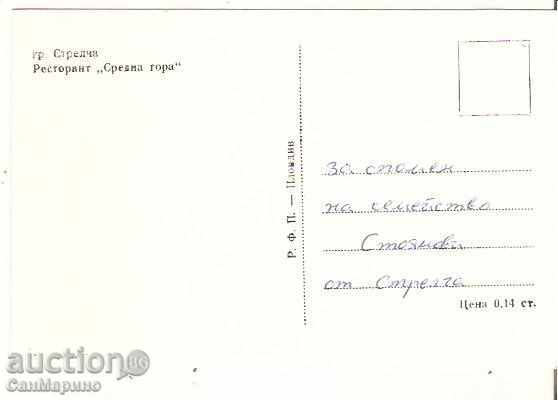 гр. Стрелча
Ресторант „Средна гора“
Р. Ф. П. — Пловдив
за спомен
на семейство
Стоянови
от Стрелча
Цена 0,14 ст.
auction BG
СанМарино